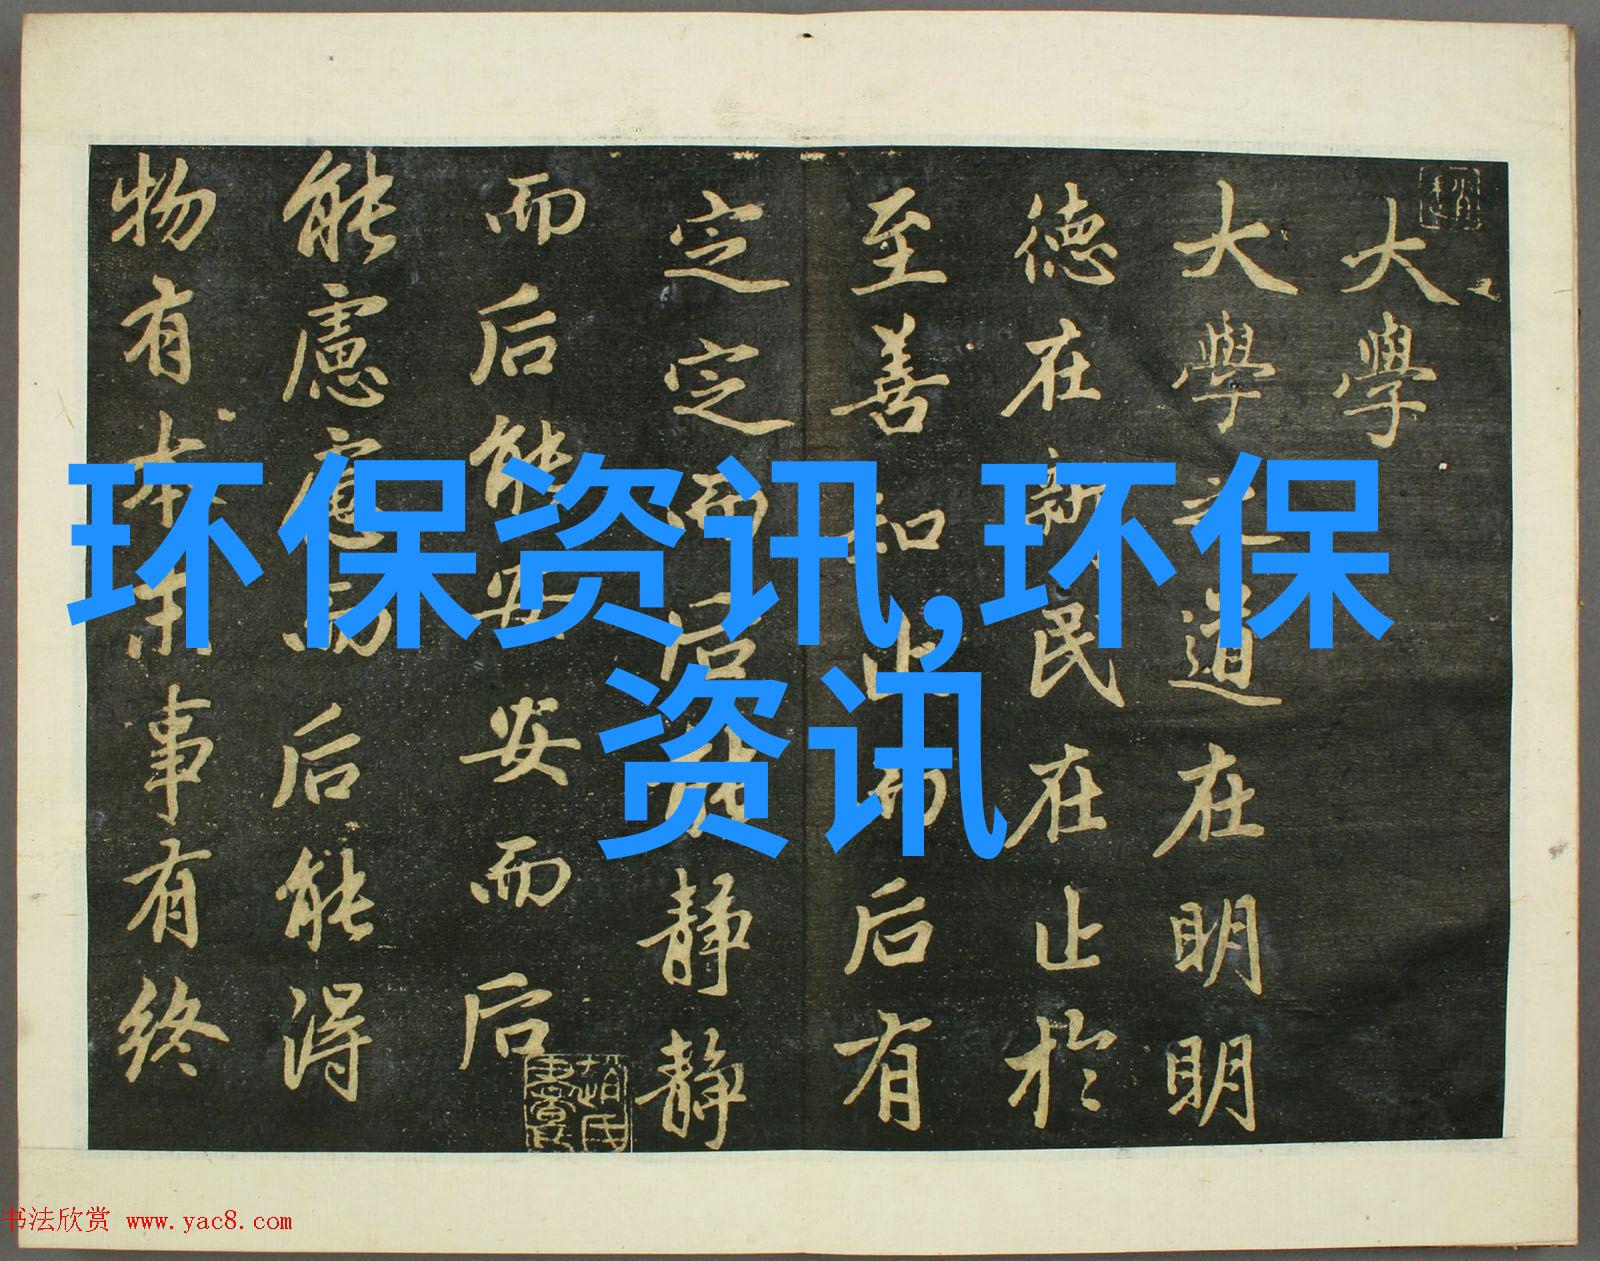 大學
大學之道在明明
德在新民在止於
至善知止而后有
定定而后能静静
而后能安安而后
能慮慮而后能得
物有本末事有終
环保资讯,环保
资讯
书法欣赏 www.yac8.com